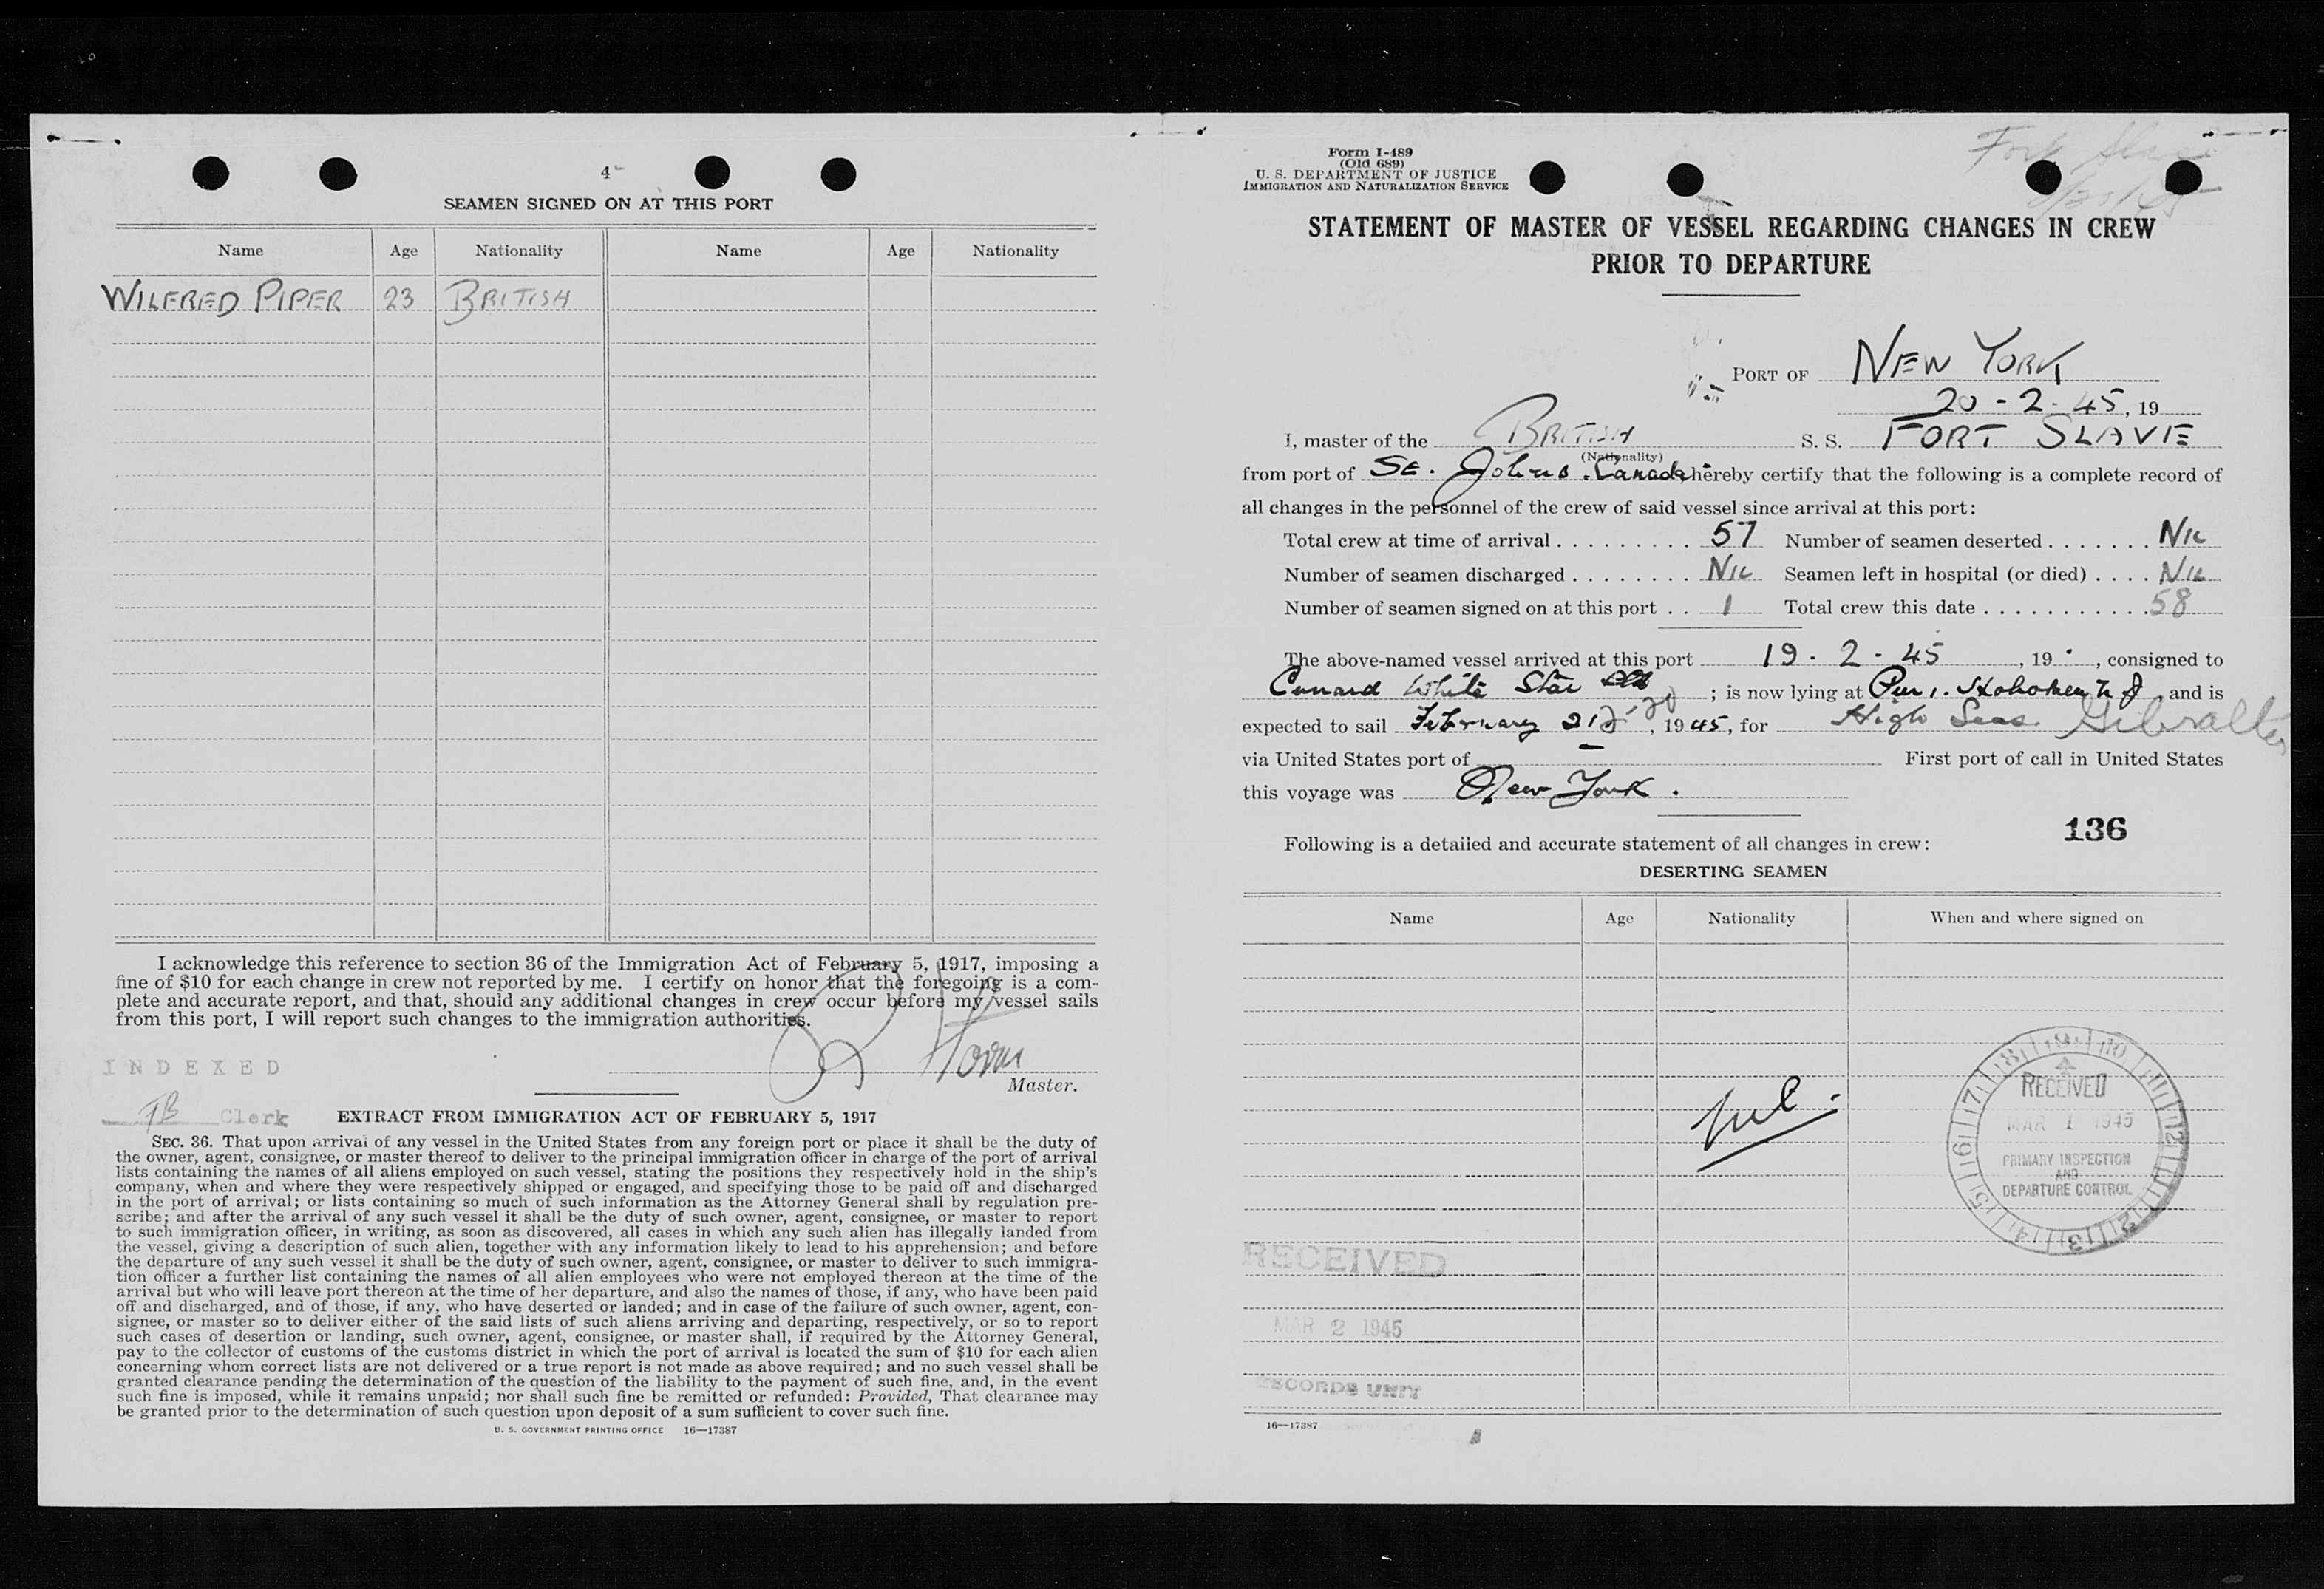 4
SEAMEN SIGNED ON AT THIS PORT
Name Age Nationality Name Age Nationality
WILFRED PIPER 23 BRITISH
I acknowledge this reference to section 36 of the Immigration Act of February 5, 1917, imposing a
fine of $10 for each change in crew not reported by me. I certify on honor that the foregoing is a com-
plete and accurate report, and that, should any additional changes in crew occur before my vessel sails
from this port, I will report such changes to the immigration authorities.
INDEXED
Master.
Clerk
EXTRACT FROM IMMIGRATION ACT OF FEBRUARY 5, 1917
SEC. 36. That upon arrival of any vessel in the United States from any foreign port or place it shall be the duty of
the owner, agent, consignee, or master thereof to deliver to the principal immigration officer in charge of the port of arrival
lists containing the names of all aliens employed on such vessel, stating the positions they respectively hold in the ship's
company, when and where they were respectively shipped or engaged, and specifying those to be paid off and discharged
in the port of arrival; or lists containing so much of such information as the Attorney General shall by regulation pre-
scribe; and after the arrival of any such vessel it shall be the duty of such owner, agent, consignee, or master to report
to such immigration officer, in writing, as soon as discovered, all cases in which any such alien has illegally landed from
the vessel, giving a description of such alien, together with any information likely to lead to his apprehension; and before
the departure of any such vessel it shall be the duty of such owner, agent, consignee, or master to deliver to such immigra-
tion officer a further list containing the names of all alien employees who were not employed thereon at the time of the
arrival but who will leave port thereon at the time of her departure, and also the names of those, if any, who have been paid
off and discharged, and of those, if any, who have deserted or landed; and in case of the failure of such owner, agent, con-
signee, or master so to deliver either of the said lists of such aliens arriving and departing, respectively, or so to report
such cases of desertion or landing, such owner, agent, consignee, or master shall, if required by the Attorney General,
pay to the collector of customs of the customs district in which the port of arrival is located the sum of $10 for each alien
concerning whom correct lists are not delivered or a true report is not made as above required; and no such vessel shall be
granted clearance pending the determination of the question of the liability to the payment of such fine, and, in the event
such fine is imposed, while it remains unpaid; nor shall such fine be remitted or refunded: Provided, That clearance may
be granted prior to the determination of such question upon deposit of a sum sufficient to cover such fine.
U. S. GOVERNMENT PRINTING OFFICE 16—17387
Form I-489
(Old 689)
U. S. DEPARTMENT OF JUSTICE
IMMIGRATION AND NATURALIZATION SERVICE
STATEMENT OF MASTER OF VESSEL REGARDING CHANGES IN CREW
PRIOR TO DEPARTURE
PORT OF NEW YORK
20-2-45, 19
I, master of the BRITISH S. S. FORT SLAVE
(Nationality)
from port of St. Johns. Canada, hereby certify that the following is a complete record of
all changes in the personnel of the crew of said vessel since arrival at this port:
Total crew at time of arrival . . . . . . . . . . 57 Number of seamen deserted . . . . . . . NIL
Number of seamen discharged . . . . . . . . NIL Seamen left in hospital (or died) . . . . NIL
Number of seamen signed on at this port . . 1 Total crew this date . . . . . . . . . . . 58
The above-named vessel arrived at this port 19-2-45, 19 , consigned to
Cunard White Star ; is now lying at Pier 1. Hoboken N J, and is
expected to sail February 21, 1945, for High Seas. Gibralter
via United States port of — First port of call in United States
this voyage was New York.
136
Following is a detailed and accurate statement of all changes in crew:
DESERTING SEAMEN
Name Age Nationality When and where signed on
Nil.
7 8 9 10 11 12 1 2 3 4 5 6
RECEIVED
MAR 1 1945
PRIMARY INSPECTION
AND
DEPARTURE CONTROL
RECEIVED
MAR 2 1945
RECORDS UNIT
16—17387